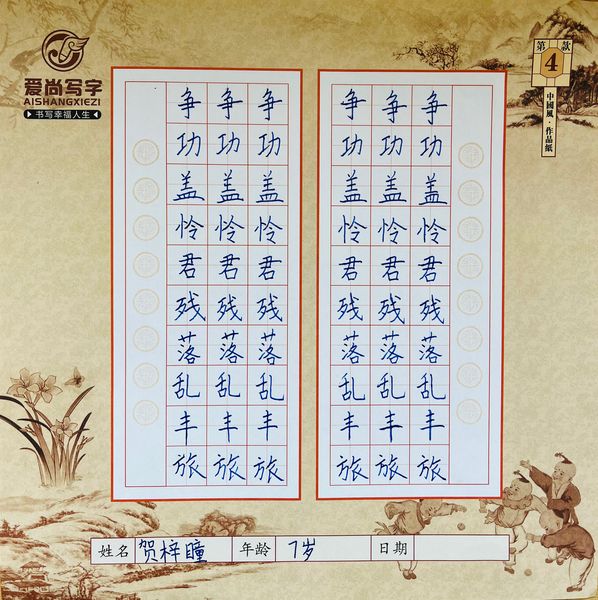 爱尚写字
AISHANGXIEZI
书写幸福人生
第 款
4
中國風·作品紙
争 争 争 争 争 争
功 功 功 功 功 功
盖 盖 盖 盖 盖 盖
怜 怜 怜 怜 怜 怜
君 君 君 君 君 君
残 残 残 残 残 残
落 落 落 落 落 落
乱 乱 乱 乱 乱 乱
丰 丰 丰 丰 丰 丰
旅 旅 旅 旅 旅 旅
姓名 贺梓瞳 年龄 7岁 日期